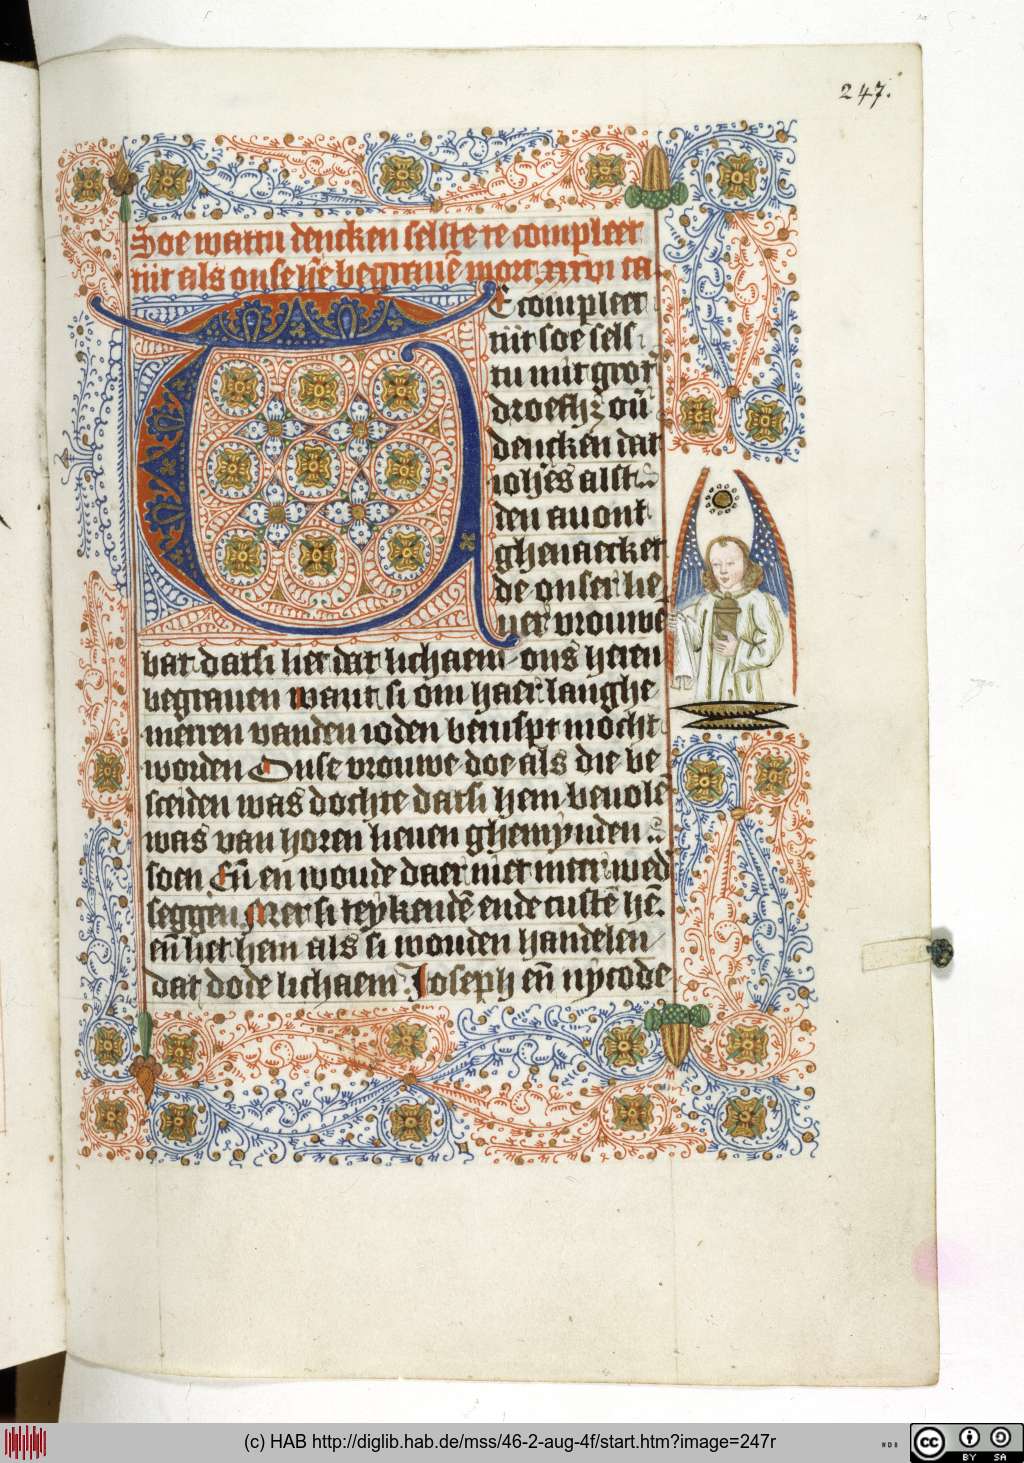 247.
Soe wattu dencken selste te compleet
tijt als onse hē begrauē wort xxvi ca
TE compleet
tijt soe sels
tu mit grot
droefhz oū
dencken dat
iohēs alst
den auont
ghenaecket
de onser lie
uer vrouwe
bat datsi liet dat lichaem ons heren
begrauen want si om haer langhe
merren vanden ioden berispt mocht
worden Onse vrouwe doe als die be
sceiden was dochte datsi hem beuolē
was van horen lieuen ghemynden
soen Eñ en woude daer niet meer wed
seggen Mer si teykendē ende custē hē.
eñ liet hem als si wouden handelen
dat dode lichaem Joseph eñ nycode
(c) HAB http://diglib.hab.de/mss/46-2-aug-4f/start.htm?image=247r
WDB
cc
BY SA